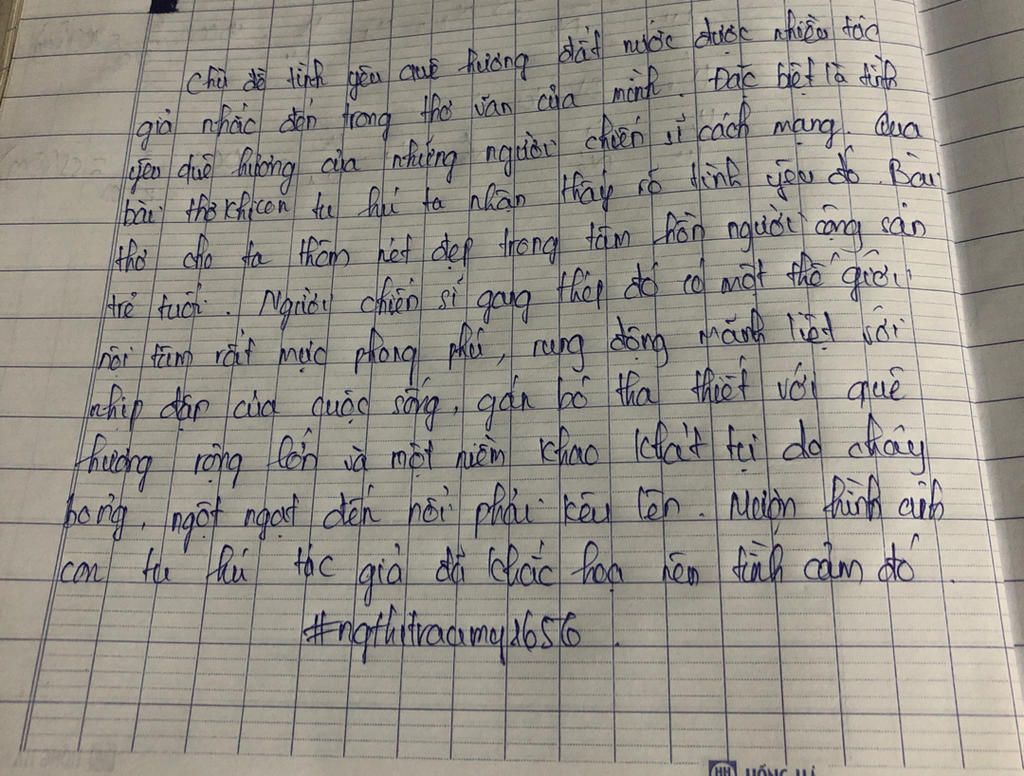 Chủ đề tình yêu quê hương đất nước được nhiều tác
giả nhắc đến trong thơ văn của mình. Đặc biệt là tình
yêu quê hương của những người chiến sĩ cách mạng. Qua
bài thơ khi con tu hú ta nhận thấy rõ tình yêu đó. Bài
thơ cho ta thêm nét đẹp trong tâm hồn người cộng sản
trẻ tuổi. Người chiến sĩ gang thép đó có một thế giới
nội tâm rất mực phong phú, rung động mãnh liệt với
nhịp đập của cuộc sống, gắn bó tha thiết với quê
hương rộng lớn và một niềm khao khát tự do cháy
bỏng, ngột ngạt đến nỗi phải kêu lên. Mượn hình ảnh
con tu hú tác giả đã khắc họa nên tình cảm đó.
#ngthitraamy1656.
HH HỒNG HÀ